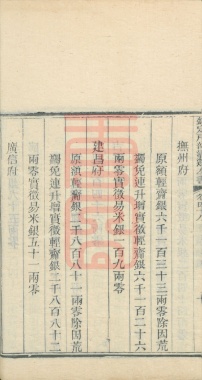 撫州府
原額輕齎銀六千一百三十三兩零除因荒
蠲免連升增實徵輕齎銀六千一百二十六
兩零實徵易米銀一百九兩零
建昌府
原額輕齎銀二千八百八十一兩零除因荒
蠲免連升增實徵輕齎銀二千八百八十二
兩零實徵易米銀五十一兩零
廣信府